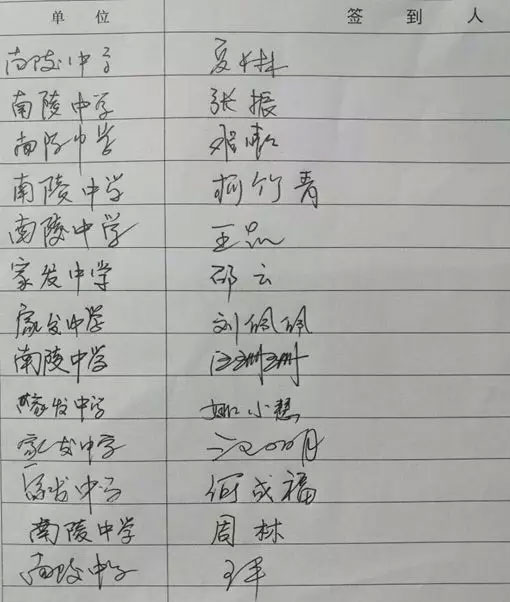 单位 签到人
南陵中学 夏林
南陵中学 张振
南陵中学
南陵中学 柯竹青
南陵中学 王磊
家发中学 邵云
家发中学 刘佩佩
南陵中学 汪珊珊
家发中学 姚小慧
家发中学
家发中学 何成福
南陵中学 周林
南陵中学